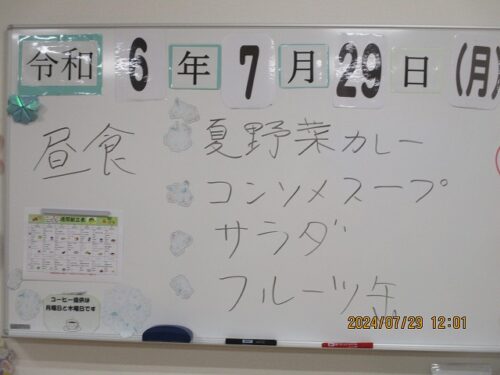 令和 6 年 7 月 29 日 (月)
昼食
夏野菜カレー
コンソメスープ
サラダ
フルーツ缶
週間献立表
コーヒー提供は
月曜日と木曜日です
2024/07/29 12:01